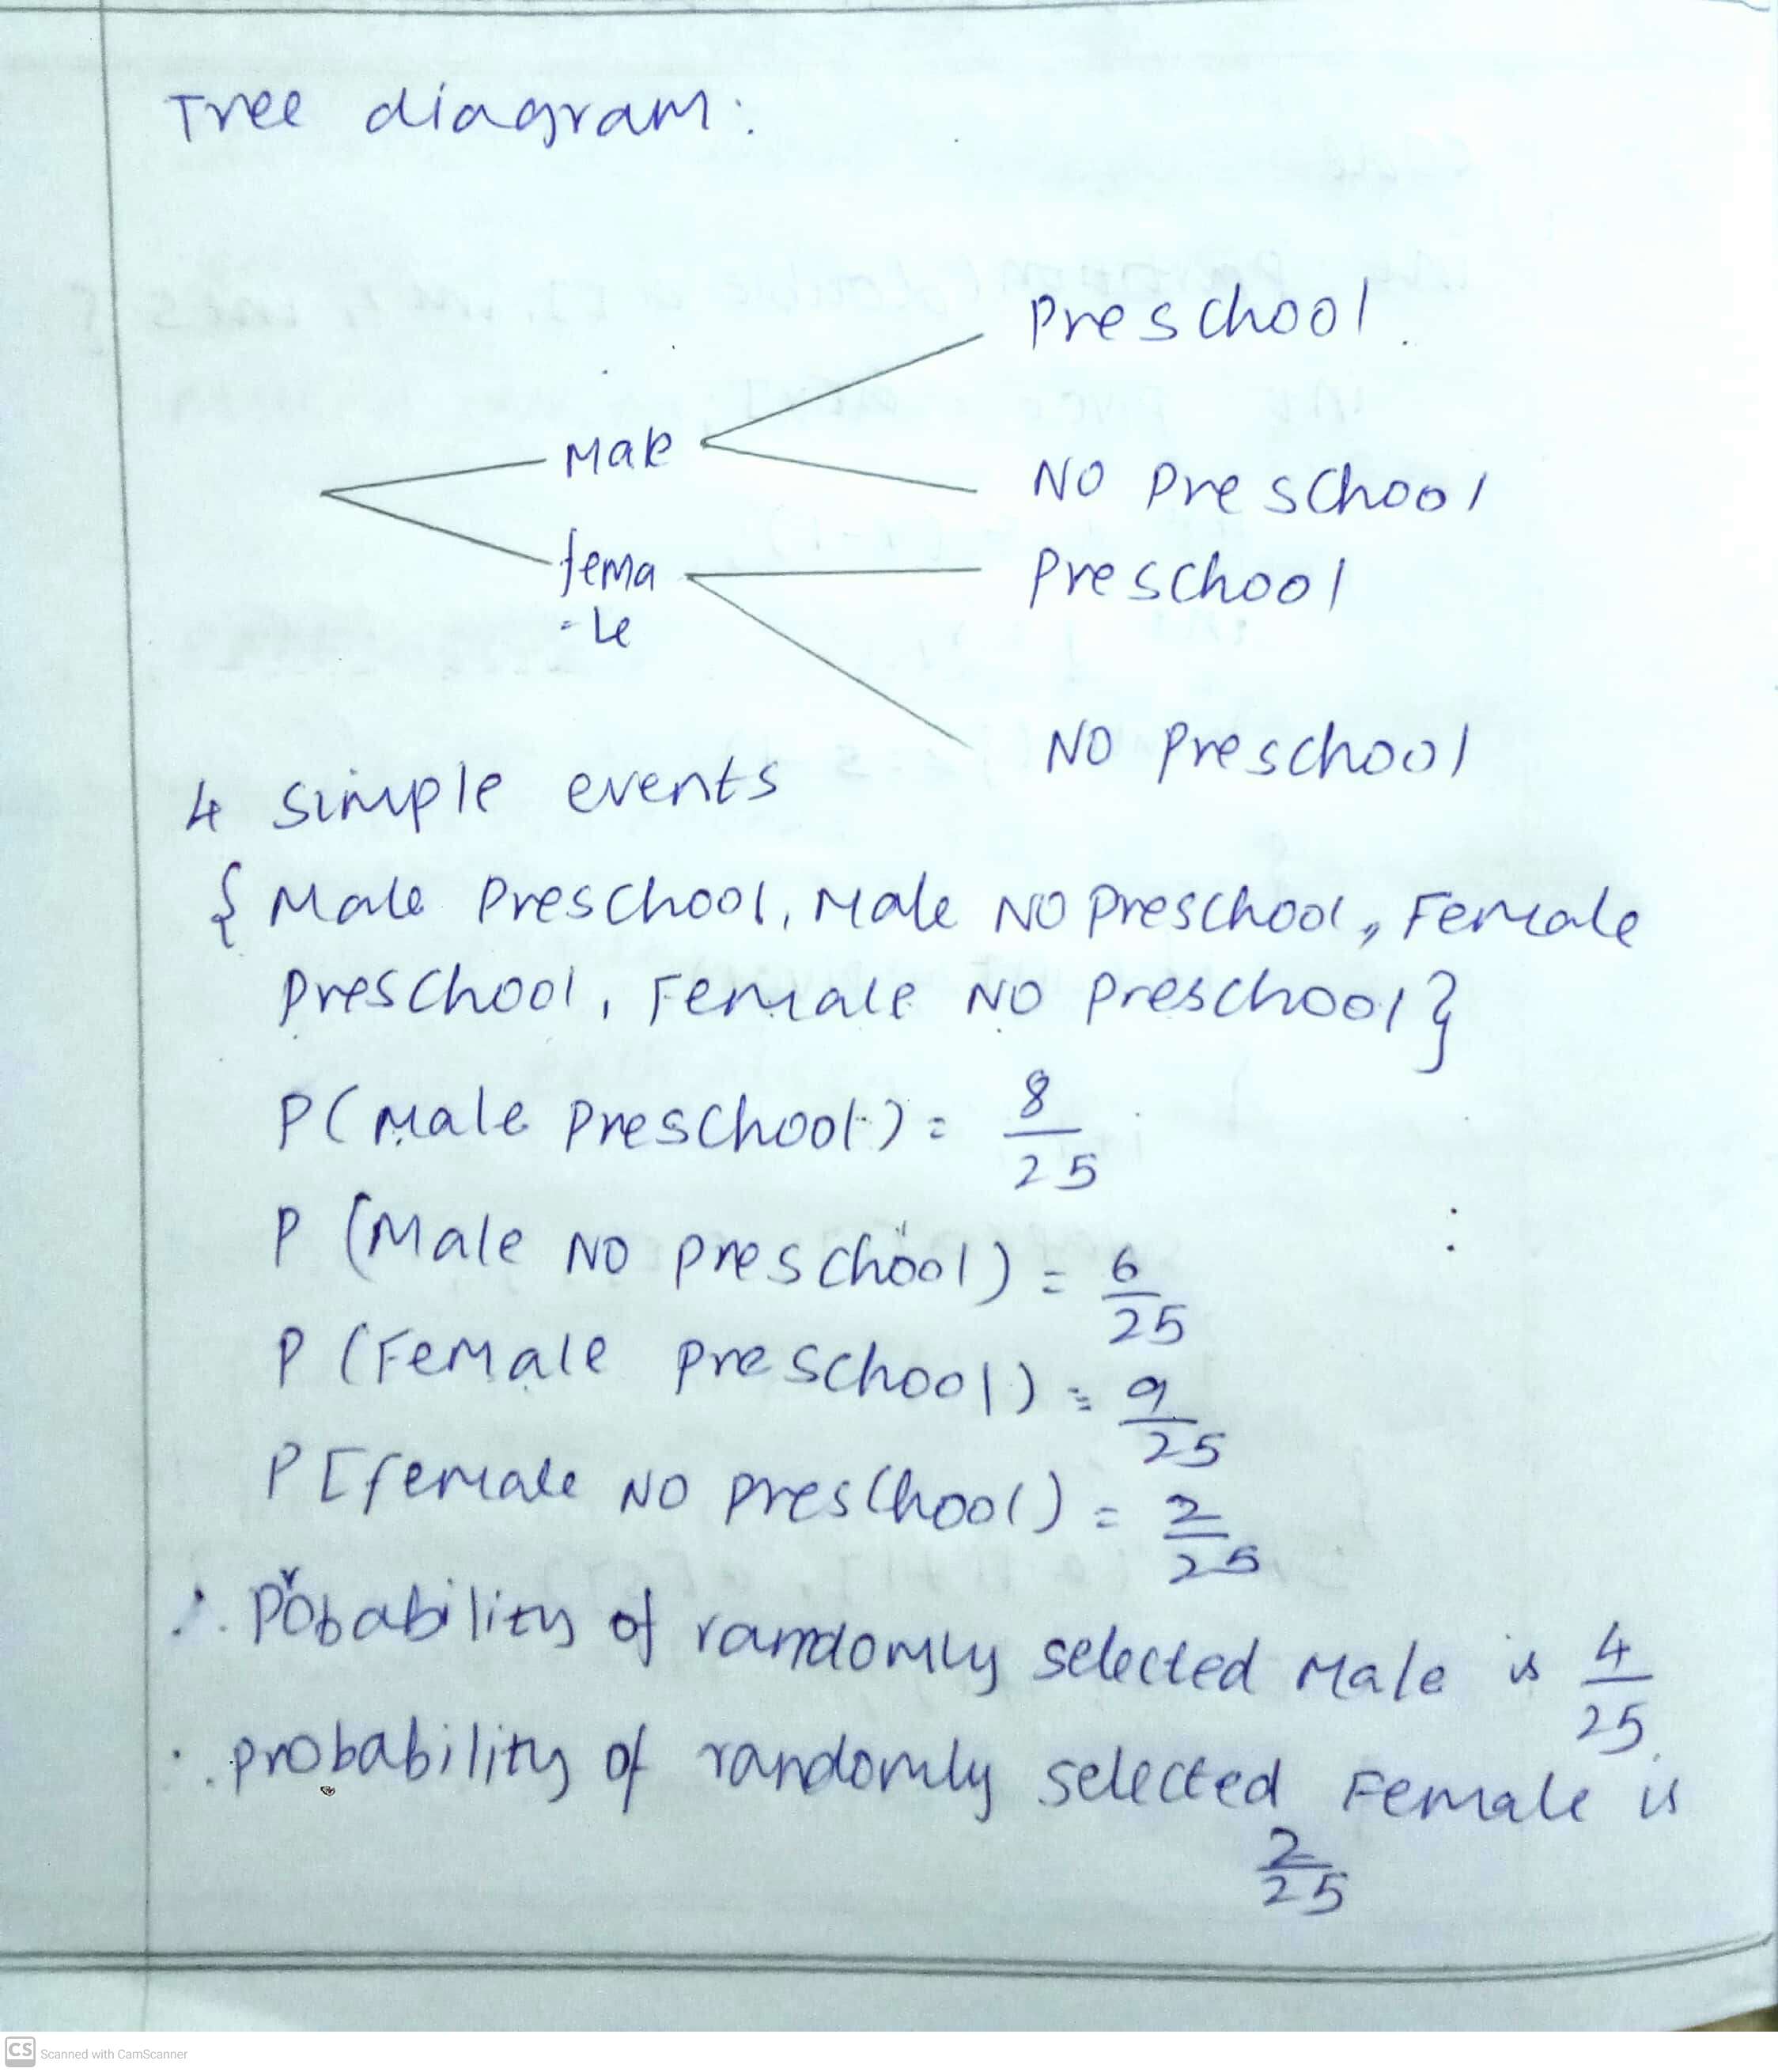 Tree diagram:
Preschool.
Male
NO Preschool
fema
-le
Preschool
NO Preschool
4 simple events
{ Male Preschool, Male NO Preschool, Female
Preschool, Female NO Preschool}
P(Male Preschool) = 8/25
P (Male NO Preschool) = 6/25
P (Female Preschool) = 9/25
P[female NO Preschool) = 2/25
∴ Pobability of ramdomly selected Male is 4/25.
∴ probability of randomly selected Female is
2/25
CS Scanned with CamScanner